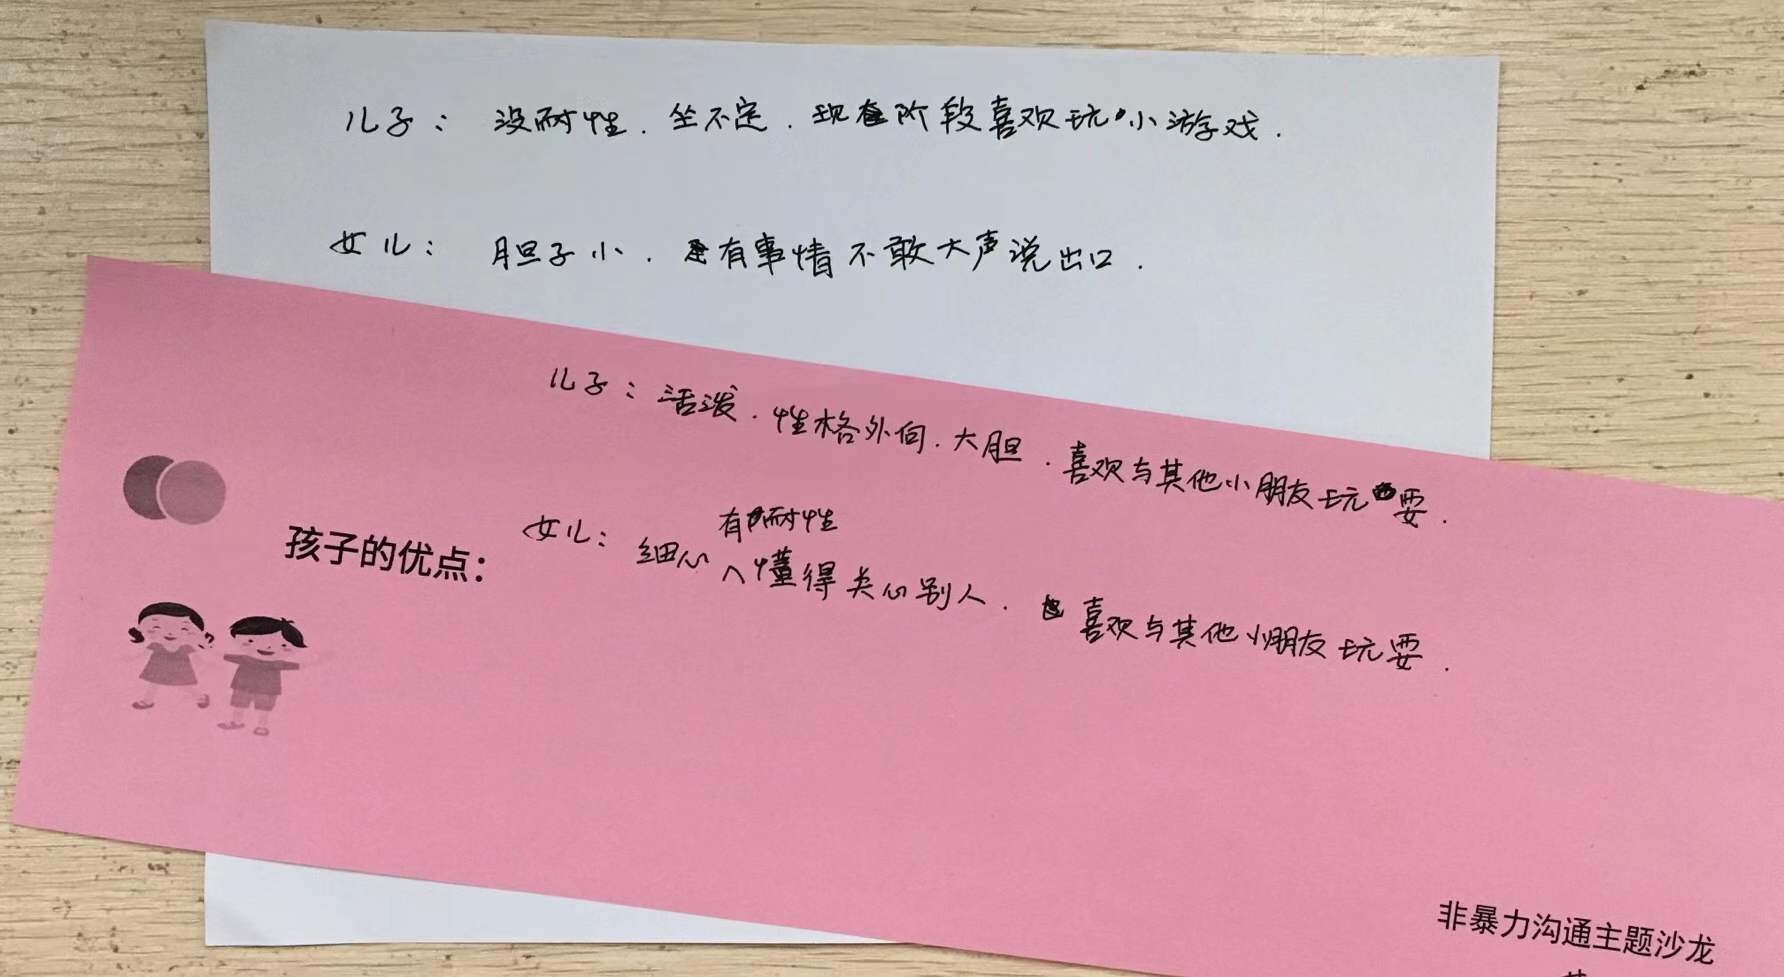 儿子：没耐性.坐不定.现在阶段喜欢玩小游戏.
女儿：胆子小.有事情不敢大声说出口.
儿子：活泼.性格外向.大胆.喜欢与其他小朋友玩耍.
有耐性
女儿：细心∧懂得关心别人.喜欢与其他小朋友玩耍.
孩子的优点：
非暴力沟通主题沙龙